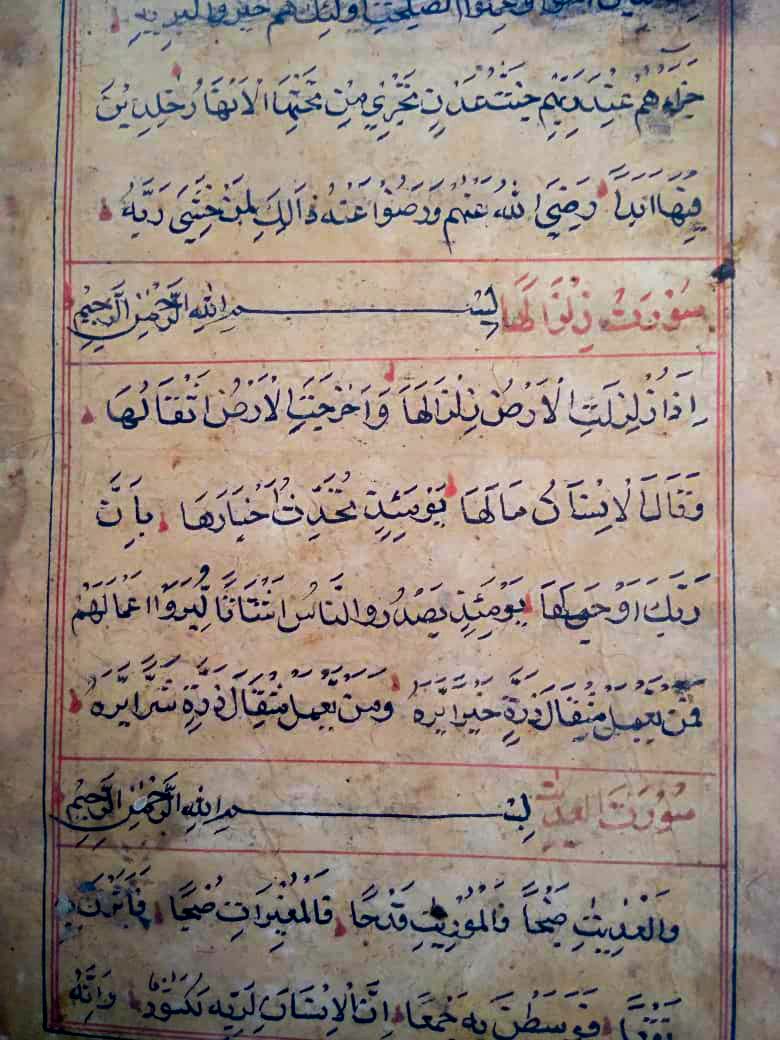 الذين امنوا وعملوا الصلحت اولئك هم خير البرية
جَزَاؤُهُمْ عِنْدَ رَبِّهِمْ جَنّٰتُ عَدْنٍ تَجْرِي مِنْ تَحْتِهَا الْاَنْهَارُ خٰلِدِيْنَ
فِيْهَا اَبَدًا رَضِيَ اللّٰهُ عَنْهُمْ وَرَضُوْا عَنْهُ ذَالِكَ لِمَنْ خَشِيَ رَبَّهُ
سُوْرَتُ زِلْزَالَهَا بِسْمِ اللّٰهِ الرَّحْمٰنِ الرَّحِيْمِ
اِذَا زُلْزِلَتِ الْاَرْضُ زِلْزَالَهَا وَاَخْرَجَتِ الْاَرْضُ اَثْقَالَهَا
وَقَالَ الْاِنْسَانُ مَالَهَا يَوْمَئِذٍ تُحَدِّثُ اَخْبَارَهَا بِاَنَّ
رَبَّكَ اَوْحٰى لَهَا يَوْمَئِذٍ يَصْدُرُ النَّاسُ اَشْتَاتًا لِّيُرَوْا اَعْمَالَهُمْ
فَمَنْ يَّعْمَلْ مِثْقَالَ ذَرَّةٍ خَيْرًا يَّرَهُ وَمَنْ يَّعْمَلْ مِثْقَالَ ذَرَّةٍ شَرًّا يَّرَهُ
سُوْرَتَ العٰدِيٰتِ بِسْمِ اللّٰهِ الرَّحْمٰنِ الرَّحِيْمِ
وَالْعٰدِيٰتِ ضَبْحًا فَالْمُوْرِيٰتِ قَدْحًا فَالْمُغِيْرَاتِ صُبْحًا فَاَثَرْنَ بِهٖ
نَقْعًا فَوَسَطْنَ بِهٖ جَمْعًا اِنَّ الْاِنْسَانَ لِرَبِّهٖ لَكَنُوْدٌ وَاِنَّهُ